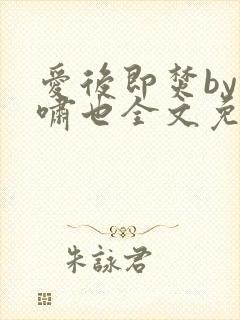 爱後即焚by
啸也全文免
朱詠君